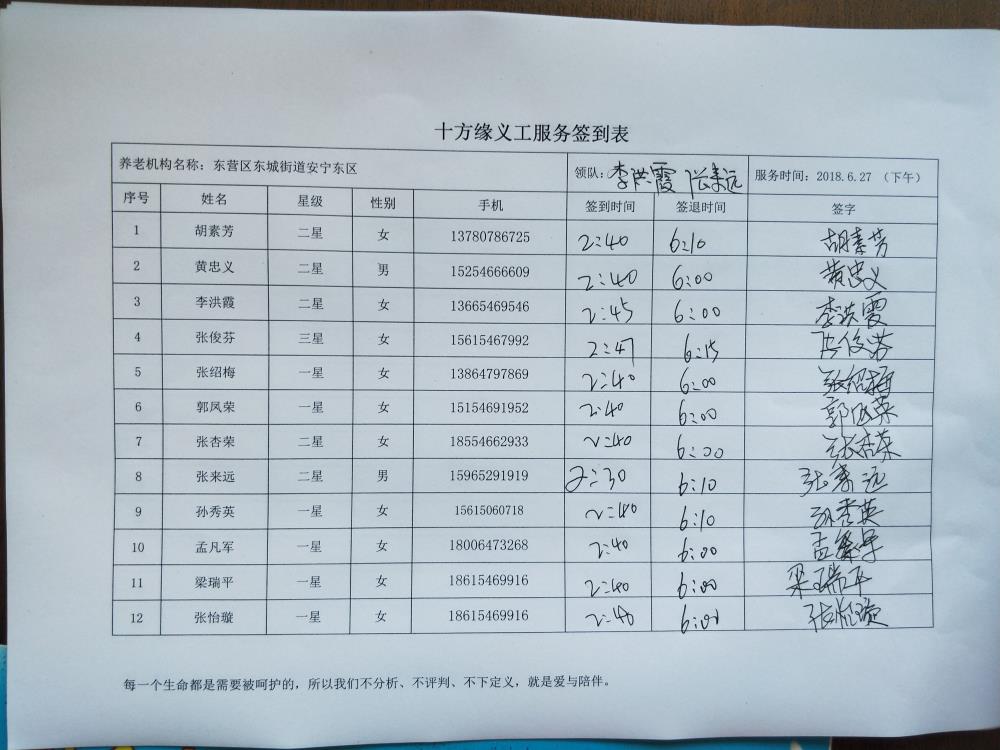 十方缘义工服务签到表
养老机构名称：东营区东城街道安宁东区 领队：李洪霞 张来远 服务时间：2018.6.27 （下午）
序号 姓名 星级 性别 手机 签到时间 签退时间 签字
1 胡素芳 二星 女 13780786725 2:40 6:10 胡素芳
2 黄忠义 二星 男 15254666609 2:40 6:00 黄忠义
3 李洪霞 二星 女 13665469546 2:45 6:00 李洪霞
4 张俊芬 三星 女 15615467992 2:47 6:15 张俊芬
5 张绍梅 一星 女 13864797869 2:40 6:00 张绍梅
6 郭凤荣 一星 女 15154691952 2:40 6:00 郭凤荣
7 张杏荣 二星 女 18554662933 2:40 6:00 张杏荣
8 张来远 二星 男 15965291919 2:30 6:10 张来远
9 孙秀英 一星 女 15615060718 2:40 6:10 孙秀英
10 孟凡军 一星 女 18006473268 2:40 6:00 孟繁军
11 梁瑞平 一星 女 18615469916 2:40 6:00 梁瑞平
12 张怡璇 一星 女 18615469916 2:40 6:00 张怡璇
每一个生命都是需要被呵护的，所以我们不分析、不评判、不下定义，就是爱与陪伴。